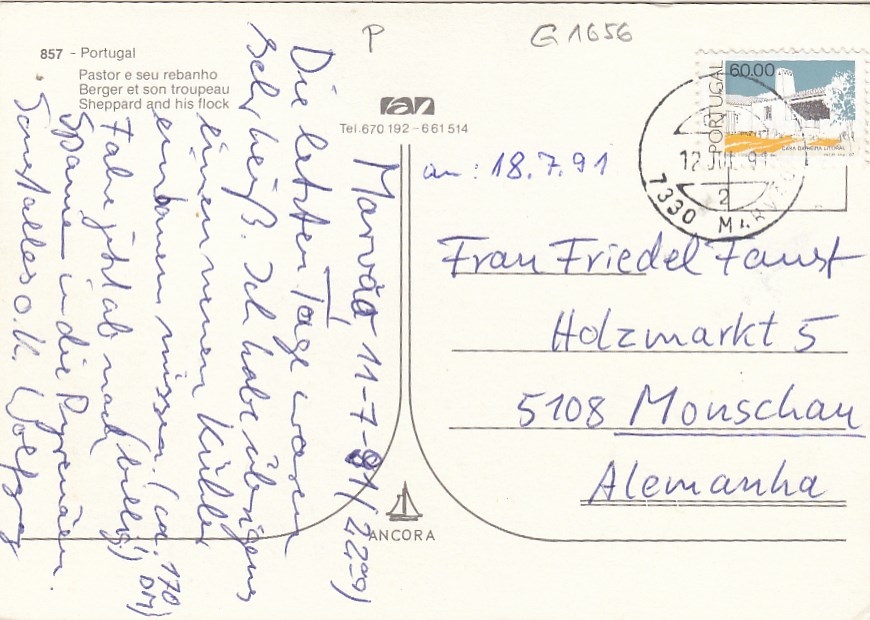 P
G 1656
857 - Portugal
Pastor e seu rebanho
Berger et son troupeau
Sheppard and his flock
Tel. 670 192 - 661 514
PORTUGAL
60.00
CASA DA BEIRA LITORAL
12 JUL. 91
2
7330 MARVÃO
an: 18.7.91
Frau Friedel Faust
Holzmarkt 5
5108 Monschau
Alemanha
ANCORA
Marvão 11-7-91
Die letzten Tage waren
sehr heiß. Ich habe übrigens
einen neuen Kühler
einbauen müssen. (ca. 170 DM)
Fahre jetzt ab nach (billig!)
Spanien in die Pyrenäen.
Sonst alles o.K. Wolfgang